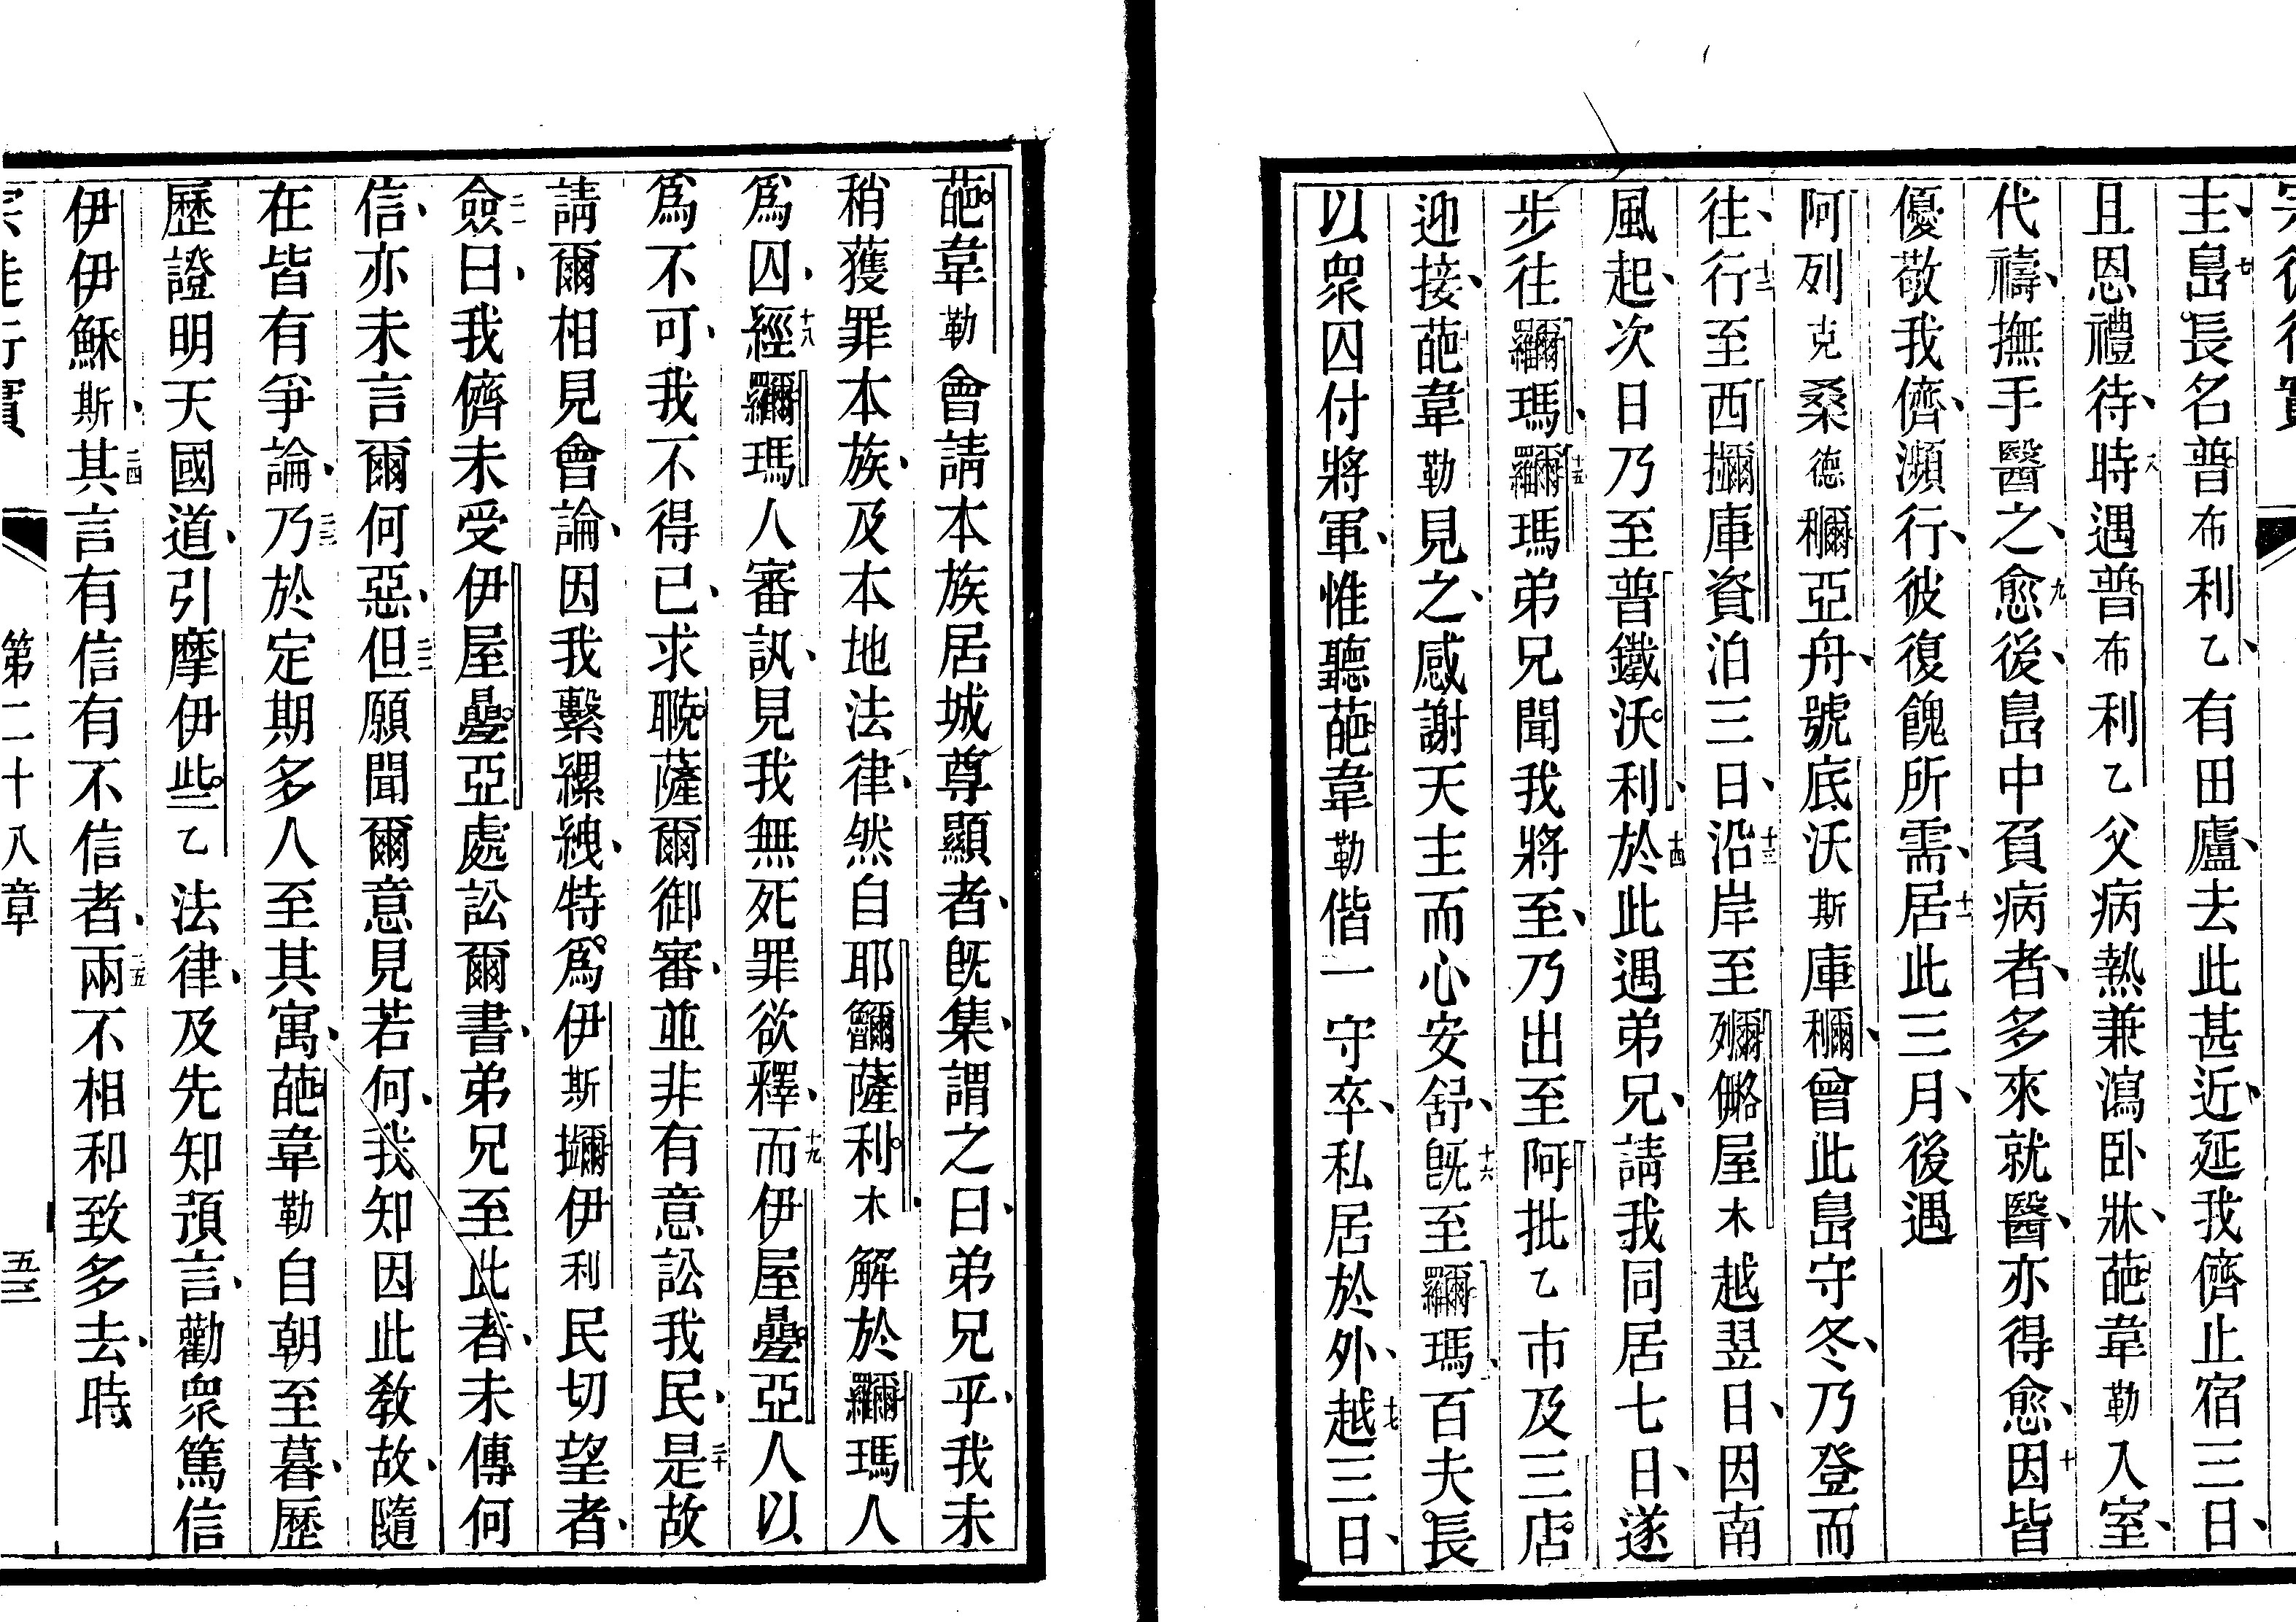 宗徒行實
主島七長名普布利乙有田廬去此甚近延我儕止宿三日
且恩禮待時八遇普布利乙父病熱兼瀉卧牀葩韋勒入室
代禱撫手醫之愈九後島中有病者多來就醫亦得愈因十皆
優敬我儕瀕行彼復餽所需居十一此三月後遇
阿列克桑德𥡪亞舟號底沃斯庫𥡪曾此島守冬乃登而
往行十二至西擟庫資泊三日沿十三岸至
屋木越翌日因南
風起次日乃至普鐵沃利於十四此遇弟兄請我同居七日遂
瑪弟兄聞我將至乃出至阿批乙市及三店
迎接葩韋勒見之感謝天主而心安舒既十六至
瑪百夫長
以眾囚付將軍惟聽葩韋勒偕一守卒私居於外越十七三日
葩韋勒會請本族居城尊顯者既集謂之曰弟兄乎我未
稍獲罪本族及本地法律然自耶
薩利木解於
瑪人
為囚經十八
瑪人審訊見我無死罪欲釋而十九伊屋疊亞人以
為不可我不得已求
薩爾御審並非有意訟我民是二十故
請爾相見會論因我繫縲絏特為伊斯擟伊利民切望者
僉二一曰我儕未受伊屋疊亞處訟爾書弟兄至此者未傳何
信亦未言爾何惡但二二願聞爾意見若何我知因此教故隨
在皆有爭論乃二三於定期多人至其寓葩韋勒自朝至暮歷
歷證明天國道引摩伊些乙法律及先知預言勸眾篤信
伊伊穌斯其二四言有信有不信者兩二五不相和致多去時
宗徒行實
第二十八章
五三